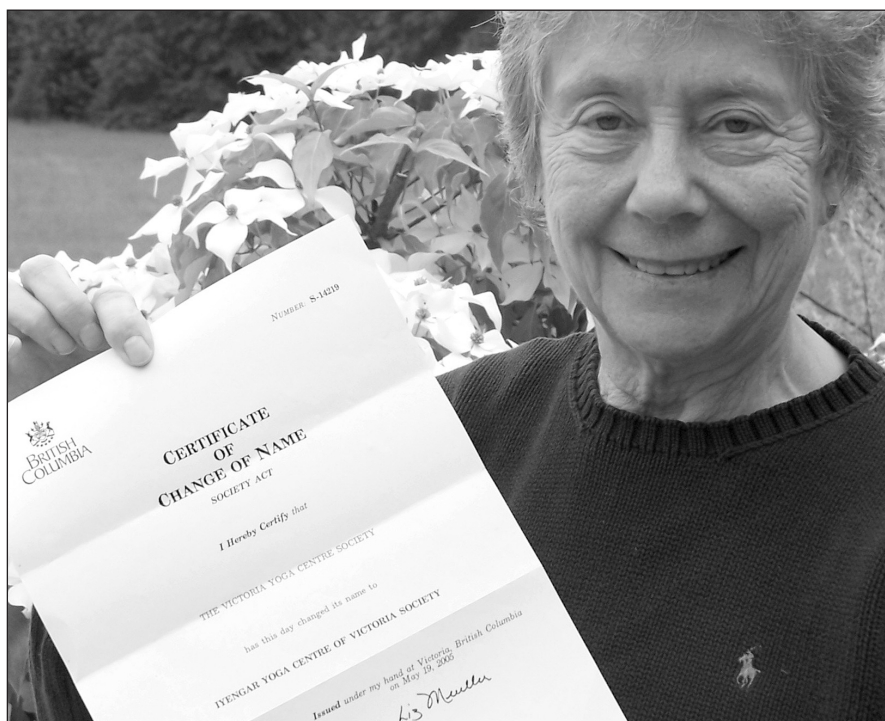 NUMBER: S-14219
BRITISH
COLUMBIA
CERTIFICATE
OF
CHANGE OF NAME
SOCIETY ACT
I Hereby Certify that
THE VICTORIA YOGA CENTRE SOCIETY
has this day changed its name to
IYENGAR YOGA CENTRE OF VICTORIA SOCIETY
Issued under my hand at Victoria, British Columbia
on May 19, 2005
Liz Mueller